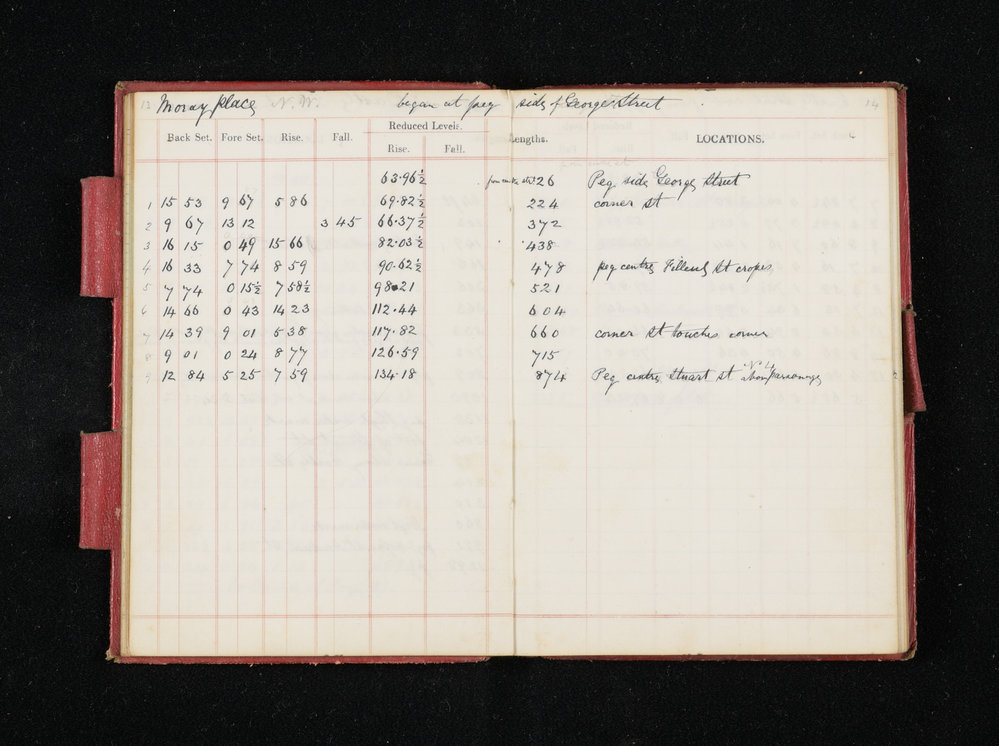 13 Moray Place N.W. began at peg side of George Street 14
Reduced Levels.
Back Set. Fore Set. Rise. Fall. Rise. Fall. Lengths. LOCATIONS.
63.96½ from centre str 26 Peg side George Street
1 15 53 9 67 5 86 69.82½ 224 corner st
2 9 67 13 12 3 45 66.37½ 372
3 16 15 0 49 15 66 82.03½ 438
4 16 33 7 74 8 59 90.62½ 478 peg centre Filleul St
5 7 74 0 15½ 7 58½ 98.21 521
6 14 66 0 43 14 23 112.44 604
7 14 39 9 01 5 38 117.82 660 corner st touches corner
8 9 01 0 24 8 77 126.59 715
9 12 84 5 25 7 59 134.18 874 Peg centre Stuart st